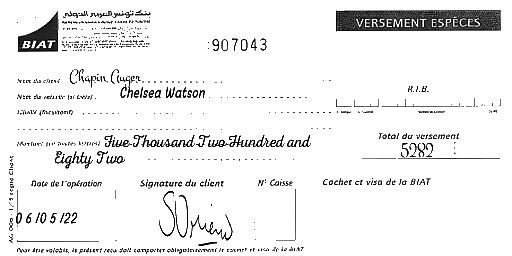 بنك تونس العربي الدولي
BIAT
VERSEMENT ESPÈCES
907043
Nom du client Chapin Auger
Chelsea Watson
R.I.B.
Montant (en toutes lettres) Five Thousand Two Hundred and
Eighty Two
Total du versement
5282
Date de l'opération Signature du client N° Caisse Cachet et visa de la BIAT
06/05/22
Pour être valable, le présent reçu doit comporter obligatoirement le cachet et visa de la BIAT